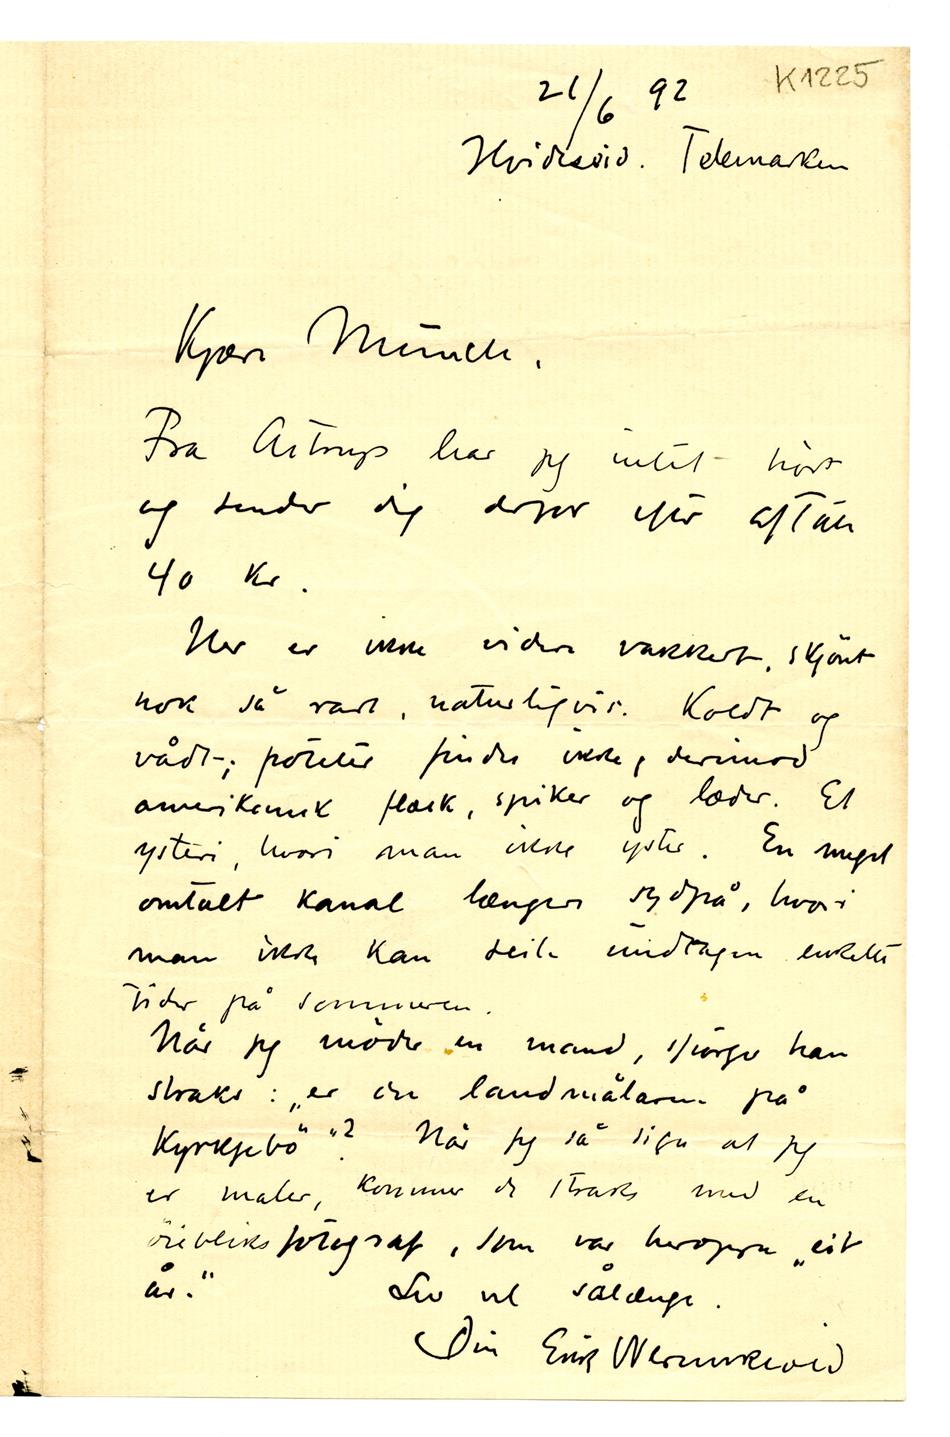 K1225
21/6 92
Hvidesøid. Telemarken
Kjære Munch.
Fra Astrup har jeg intet hört
og sender dig derfor efter aftale
40 Kr.
Her er ikke videre vakkert, skjönt
nok så rart, naturligvis. Koldt og
vådt; poteter findes ikke, derimod
amerikansk flæsk, spiker og læder. Et
ysteri, hvori man ikke yster. En meget
omtalt kanal længere sydpå, hvori
man ikke kan seile undtagen enkelte
tider på sommeren.
Når jeg möder en mand, spörger han
straks: „er du landmålaren på
Kyrkjebö“? Når jeg så siger at jeg
er maler, kommer de straks med en
öiebliksfotograf, som var heroppe „eit
år.“ Lev vel sålænge.
Din Erik Werenskiold